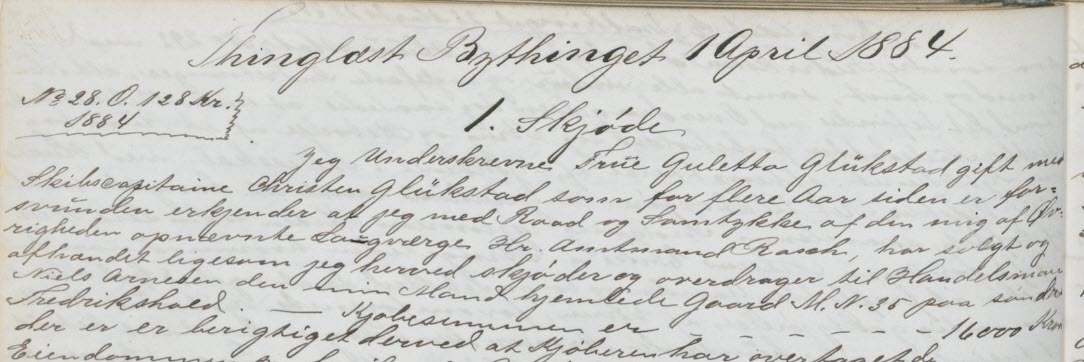 Thinglæst Bythinget 1 April 1884.
No 28. O. 128 Kr.
1884
1. Skjøde
Jeg Underskrevne Frue Guletta Glükstad gift med
Skibscapitaine Christen Glükstad som for flere Aar siden er for=
svunden erkjender at jeg med Raad og Samtykke af den mig af Øv=
righeden opnævnte Laugværge Hr. Amtmand Rasch, har solgt og
afhandet ligesom jeg herved skjøder og overdrager til Handelsmand
Niels Arnesen den min Mand hjemlede Gaard M. N. 35 paa søndre
Fredrikshald. — Kjøbesummen er — — — — 16000 Kron
der er er berigtiget derved at Kjøberen har overtaget d
Eiendommen